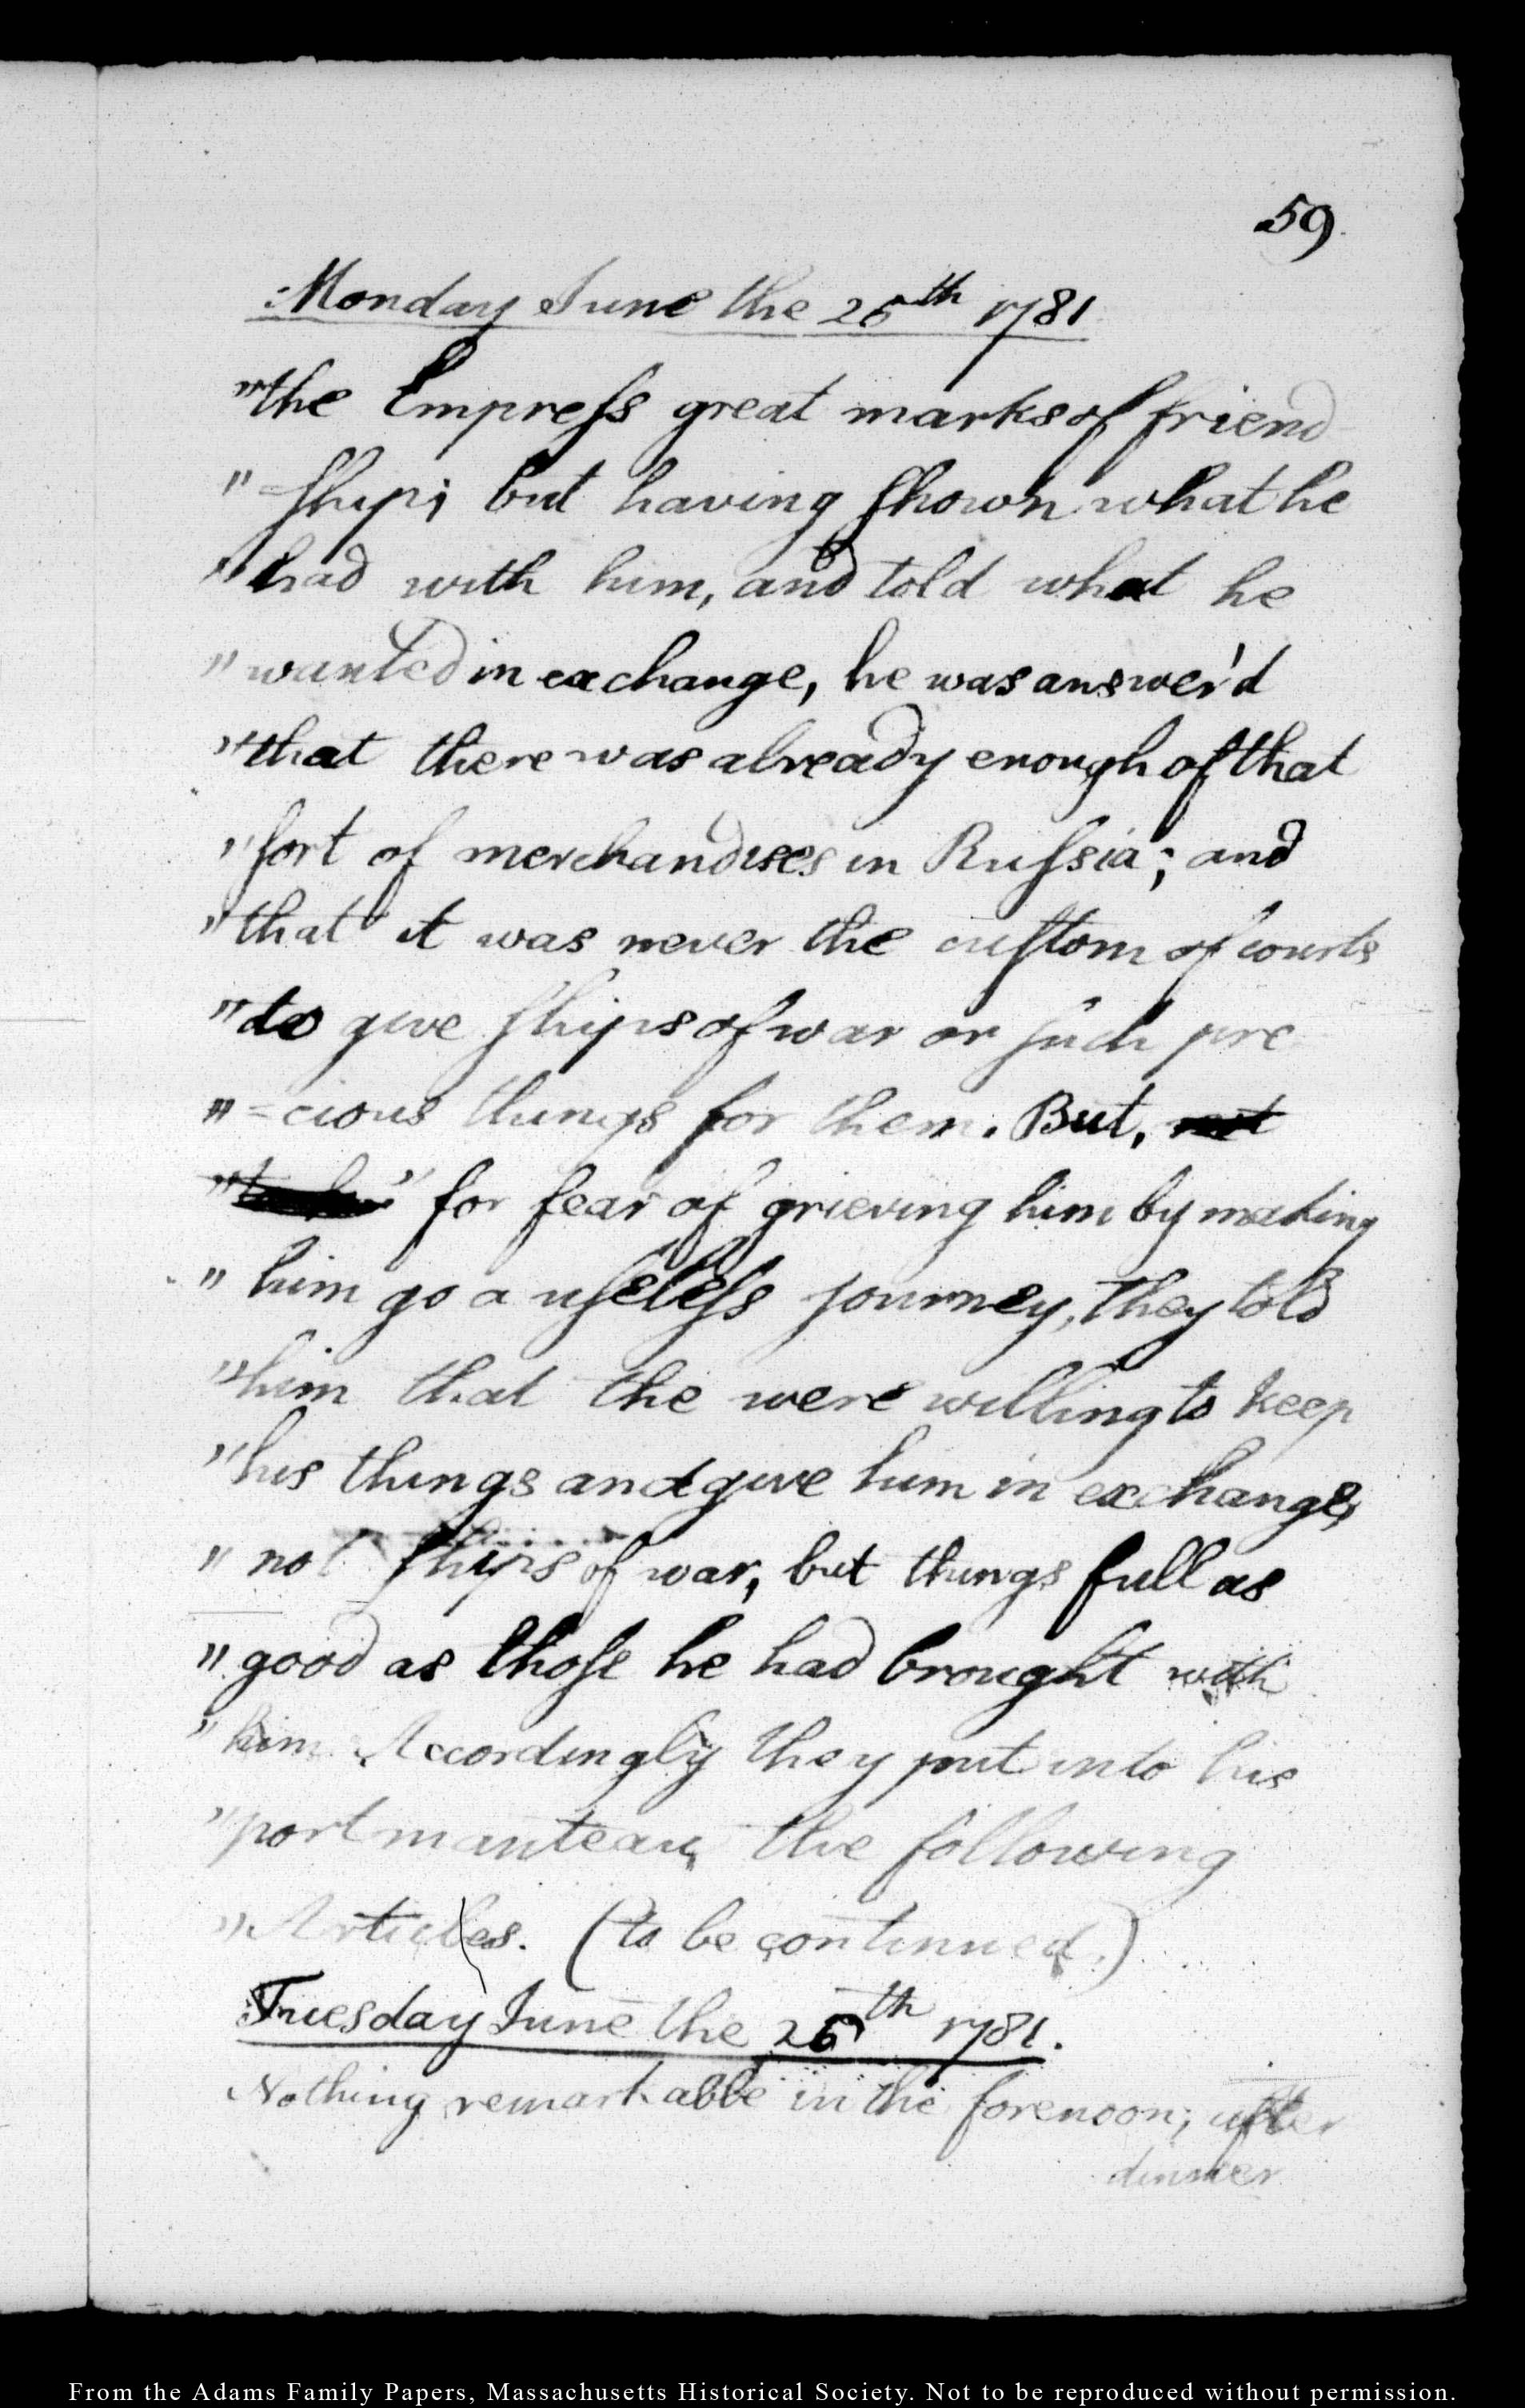 59.
Monday June the 25th 1781
"the Empreſs great marks of friend
" =ſhip; but having ſhown what he
" had with him, and told what he
" wanted in exchange, he was answer'd
" that there was already enough of that
" ſort of merchandises in Ruſsia; and
" that it was never the cuſtom of courts
" to give ſhips of war or ſuch pre
" =cious things for them. But, not
" for fear of grieving him by making
" him go a uſeleſs journey, they told
" him that the were willing to keep
" his things and give him in exchange,
" not ſhips of war, but things full as
" good as thoſe he had brought with
" him. Accordingly they put into his
" portmanteau, the following
" Articles. (to be continued.)
Tuesday June the 26th 1781.
Nothing remarkable in the forenoon; after
dinner
From the Adams Family Papers, Massachusetts Historical Society. Not to be reproduced without permission.